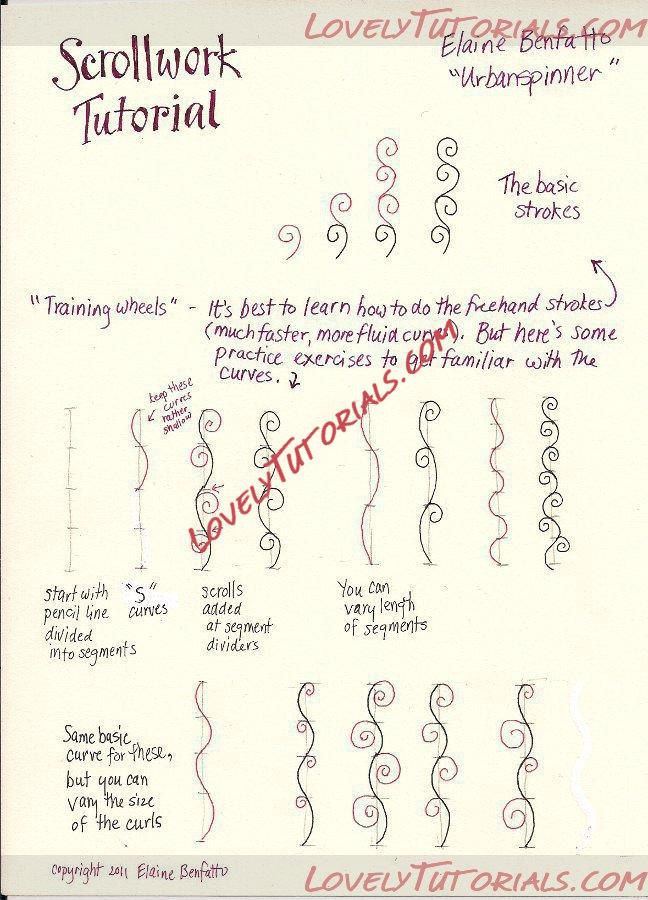 LOVELYTUTORIALS.COM
Scrollwork
Tutorial
Elaine Benfatto
"Urbanspinner"
The basic
strokes
"Training wheels" - It's best to learn how to do the freehand strokes
(much faster, more fluid curves). But here's some
practice exercises to get familiar with the
curves.
keep these
curves
rather
shallow
LOVELYTUTORIALS.COM
start with
pencil line
divided
into segments
"S"
curves
scrolls
added
at segment
dividers
You can
vary length
of segments
Same basic
curve for these,
but you can
vary the size
of the curls
copyright 2011 Elaine Benfatto
LOVELYTUTORIALS.COM